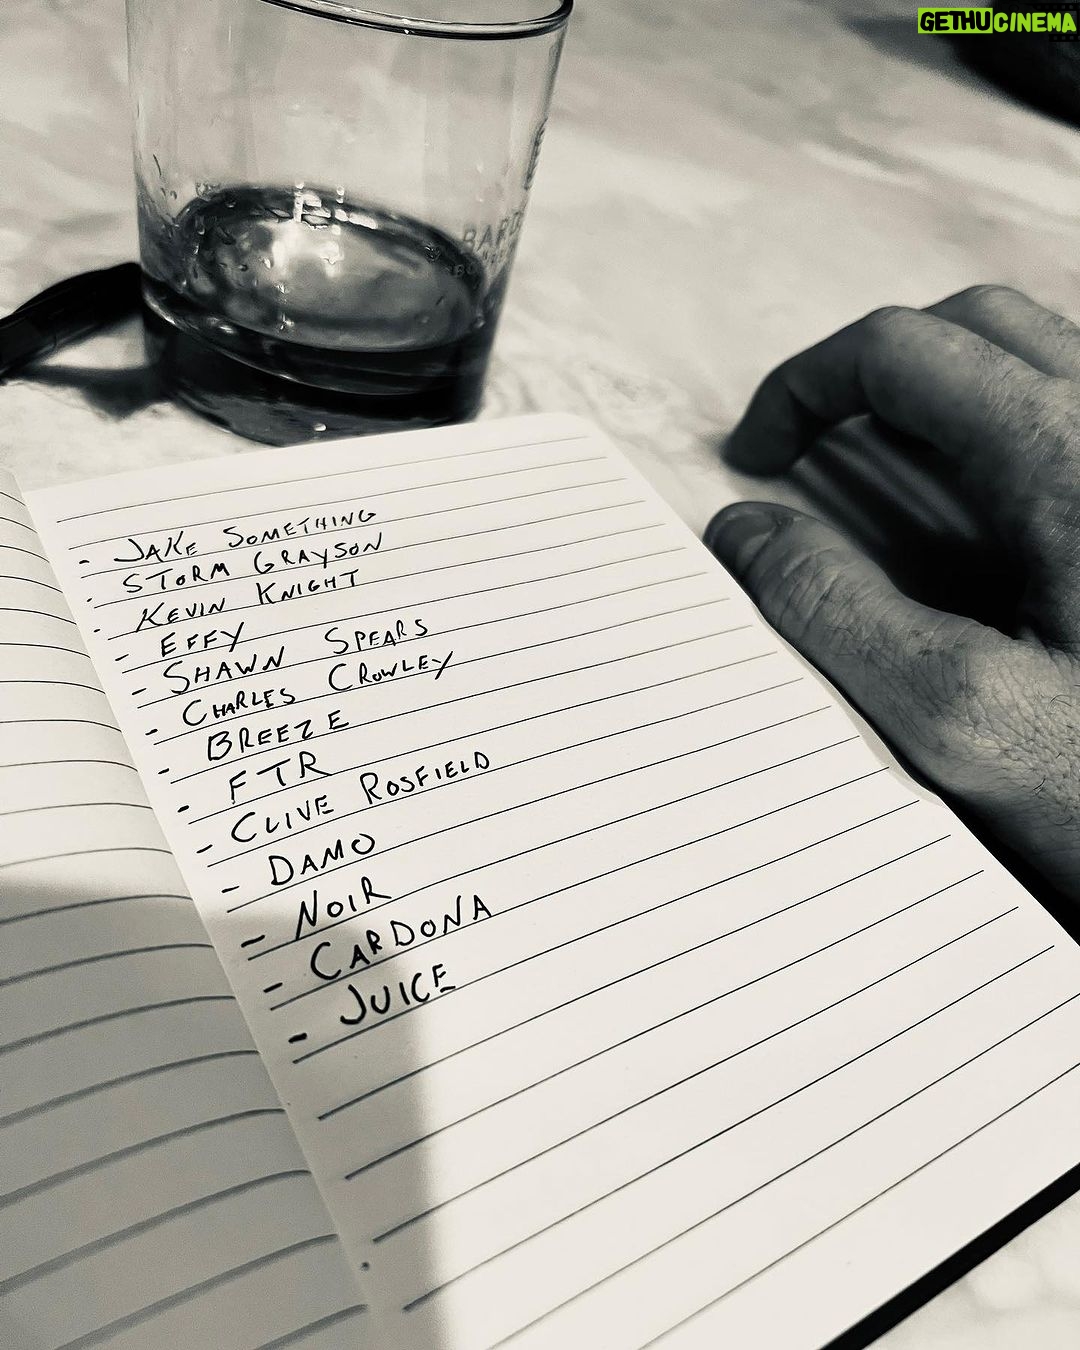 GETHUCINEMA
BARD
BO
- JAKE SOMETHING
- STORM GRAYSON
- KEVIN KNIGHT
- EFFY
- SHAWN SPEARS
- CHARLES CROWLEY
- BREEZE
- FTR
- CLIVE ROSFIELD
- DAMO
- NOIR
- CARDONA
- JUICE